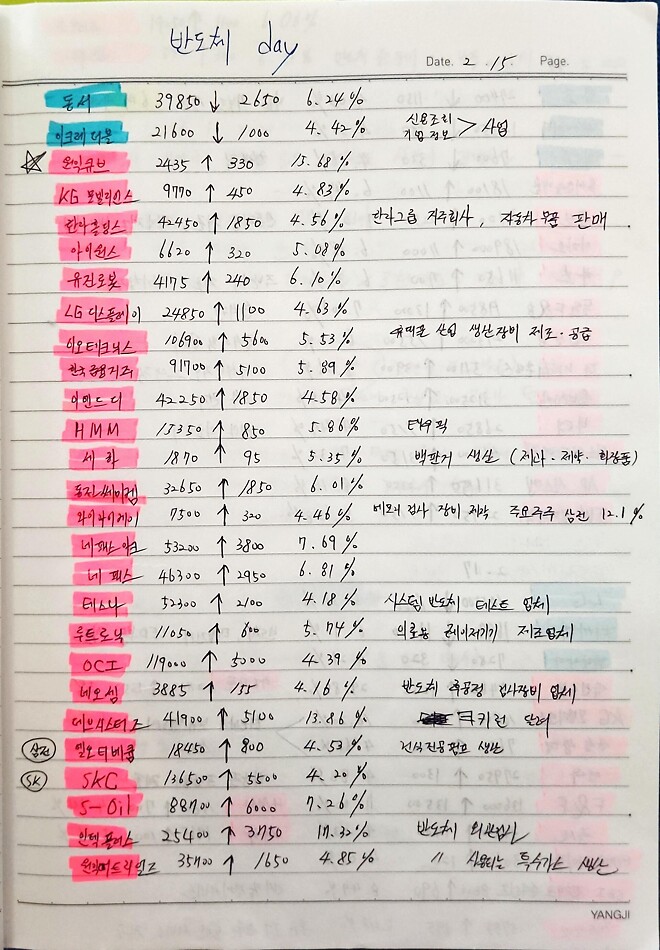 반도체 day
Date. 2. 15. Page.
동서 39850 ↓ 2650 6.24%
이크레더블 21600 ↓ 1000 4.42% 신용조회 기업정보 > 사업
☆ 원익큐브 2435 ↑ 330 15.68%
KG 모빌리언스 9770 ↑ 450 4.83%
한라홀딩스 42450 ↑ 1850 4.56% 한라그룹 지주회사, 자동차 부품 판매
아이원스 6620 ↑ 320 5.08%
유진로봇 4175 ↑ 240 6.10%
LG 디스플레이 24850 ↑ 1100 4.63%
이오테크닉스 106900 ↑ 5600 5.53% 산업 생산장비 제조·공급
한국금융지주 91700 ↑ 5100 5.89%
이엔드디 42250 ↑ 1850 4.58%
HMM 15350 ↑ 850 5.86%
세하 1870 ↑ 95 5.35% 백판지 생산 (제과·제약·화장품)
동진쎄미켐 32650 ↑ 1850 6.01%
와이아이케이 7500 ↑ 320 4.46% 메모리 검사 장비 제작 주요주주 삼전 12.1%
네패스아크 53200 ↑ 3800 7.69%
네패스 46300 ↑ 2950 6.81%
테스나 52300 ↑ 2100 4.18% 시스템 반도체 테스트 업체
루트로닉 11050 ↑ 600 5.74% 의료용 레이저기기 제조업체
OCI 119000 ↑ 5000 4.39%
네오셈 3885 ↑ 155 4.16% 반도체 후공정 검사장비 업체
데브시스터즈 41900 ↑ 5100 13.86% 쿠키런
삼전 엘오티베큠 18450 ↑ 800 4.53% 건식진공펌프 생산
SK SKC 136500 ↑ 5500 4.20%
S-Oil 88700 ↑ 6000 7.26%
인텍플러스 25400 ↑ 3750 17.32% 반도체 외관검사
원익머트리얼즈 35700 ↑ 1650 4.85% 〃 사용되는 특수가스 생산
YANGJI